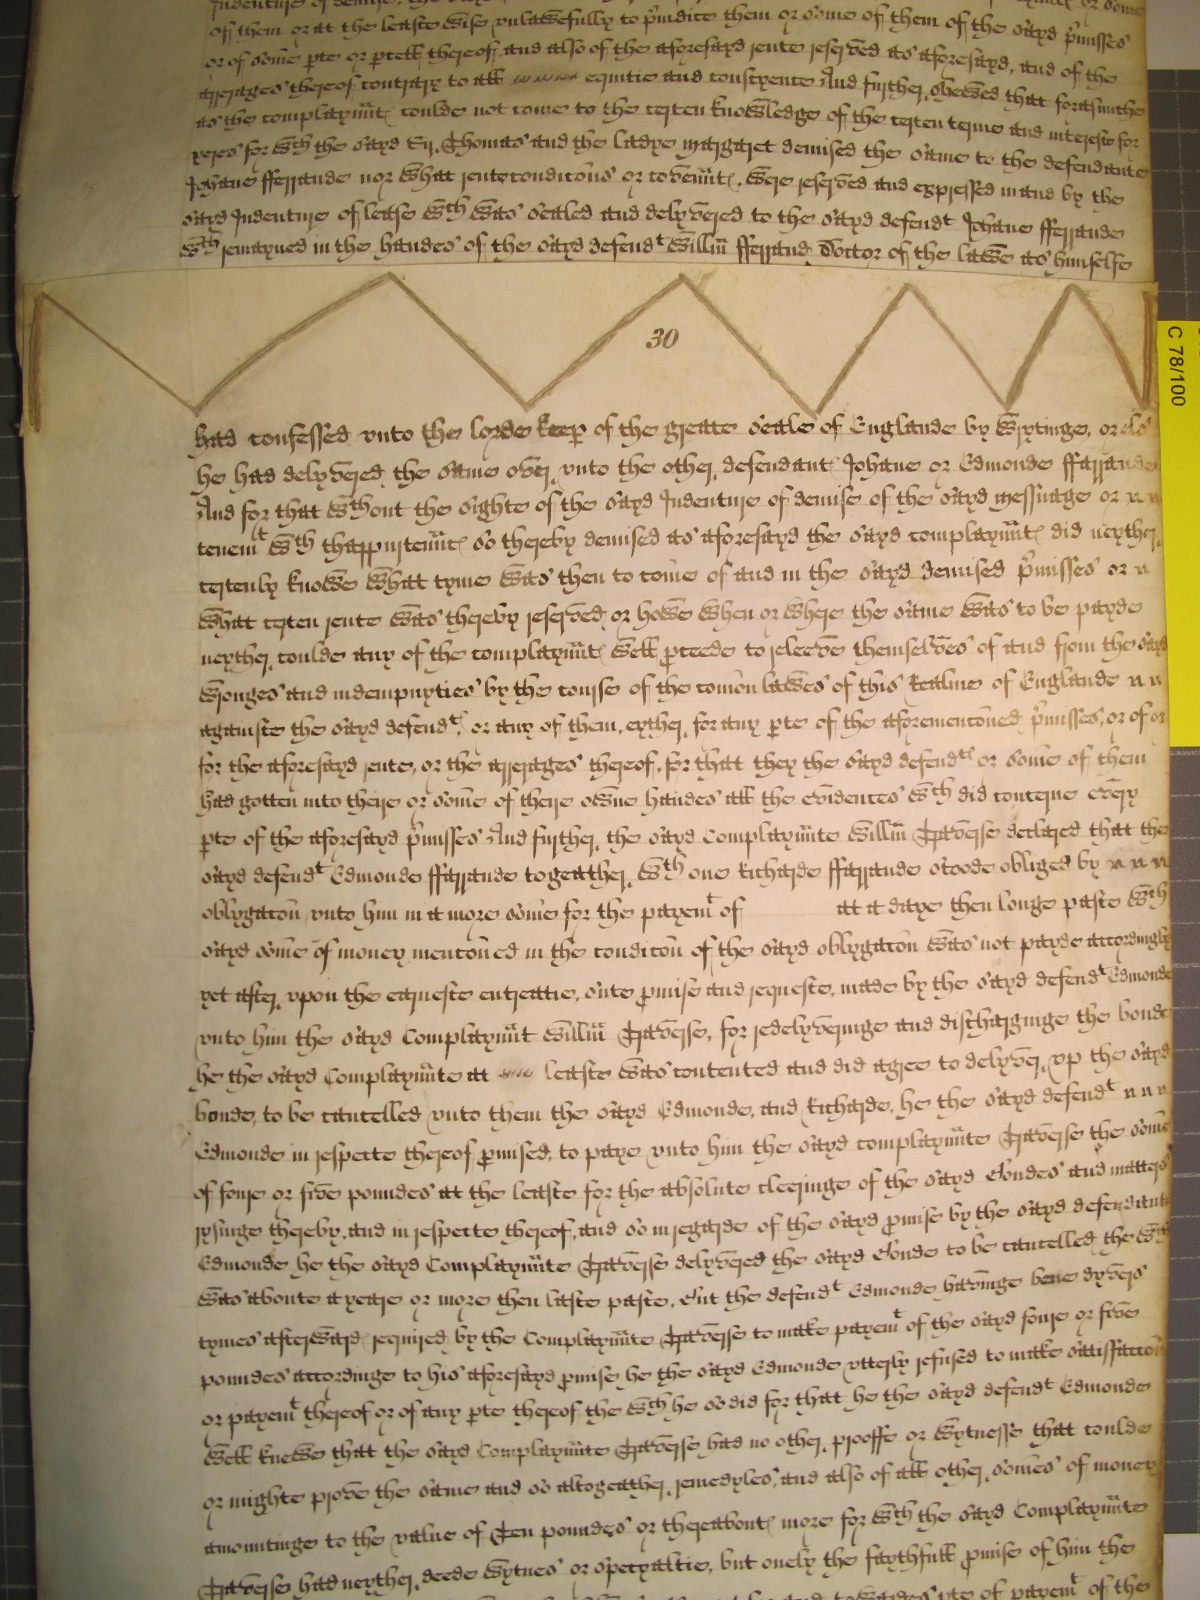 of them or at the leaste wise unlawefully to p̃iudice them or some of them of the sayd p̃misses
or of some pte or pcell thereof and also of the aforesayd rente reserved as aforesayd, and of the
arrerages thereof contrary to all equitie and conscyence And further shewed that forasmuche
as the complaynͥt coulde not come to the certen knowledge of the certen terme and interest for
yeres for wᵗʰ the sayd Sr. Thomas and the ladye Margaret demised the same to the defendante
Johane fferrande nor what rente conditōns or coven̄ᵗ were reserved and expressed in and by the
sayd Indenture of lease wᶜʰ was sealed and delyvered to the sayd defendᵗ Johane fferrande
wᶜʰ remayned in the handes of the sayd defendᵗ Willm̄ fferrand Doctor of the lawe as himselfe
30
had confessed unto the lorde keep of the greate seale of Englande by wrytinge, or els
he had delyvered the same over unto the other defendant Johane or Edmonde ffarrande
And for that wᵗʰout the sighte of the sayd Indenture of demise of the sayd messuage or
tenemᵗ wᵗʰ thappurten̄ᵗ so thereby demised as aforesayd the sayd complayn̄ᵗ did neyther
certenly knowe what tyme was then to come of and in the sayd demised p̃misses or
what certen rente was thereby reserved, or howe when or where the same was to be payde
neyther coulde any of the complayn̄ᵗ well pceede to releeve themselves of and from the sayd
wronges and indempnyties by the course of the comōn lawes of this Realme of Englande
againste the sayd defendᵗ or any of them, eyther for any pte of the aforementōned p̃misses, or of or
for the aforesayd rente, or the arrerages thereof, for that they the sayd defendᵗˢ or some of them
had gotten into there or some of there owne handes all the evidences wᶜʰ did concerne every
pte of the aforesayd p̃misses And further the sayd Complayn̄te Willm̄ Traverse declared that the
sayd defendᵗ Edmonde ffarrande togeather wᵗʰ one Richarde ffarrande stoode obliged by
oblygatōn unto him in a more some for the paymᵗ of at a daye then longe paste wᶜʰ
sayd some of money mentōned in the conditōn of the sayd oblygatōn was not payde accordingly
yet after upon the earneste entreatie, sute pmise and requeste, made by the sayd defendᵗ Edmonde
unto him the sayd Complayn̄t Willm̄ Traverse, for redelyveringe and discharginge the bonde
he the sayd Complayn̄te at leaste was contented and did agree to delyver up the sayd
bonde, to be cancelled unto them the sayd Edmonde, and Richarde, he the sayd defendᵗ
Edmonde in respecte thereof pmised, to paye unto him the sayd complayn̄te Traverse the some
of foure or five poundes at the leaste for the absolute cleeringe of the sayd Bondes and matters
rysinge thereby, and in respecte thereof, and so in regarde of the sayd pmise by the sayd defendante
Edmonde he the sayd Complayn̄te Traverse delyvered the sayd Bonde to be cancelled, the wᶜʰ
was aboute a yeare or more then laste paste, But the defendᵗ Edmonde havinge bene dyvers
tymes afterward required by the Complayn̄te Traverse to make paymᵗ of the sayd foure or five
poundes accordinge to his aforesayd pmise he the sayd Edmonde utterly refused to make satisfaccōn
or paymᵗ thereof or of any pte thereof the wᶜʰ he so did for that he the sayd defendᵗ Edmonde
well knewe that the sayd Complayn̄te Traverse had no other prooffe or wytnesse that coulde
or mighte prove the same and so altogeather remedyles, and also of all other somes of money
amountinge to the value of Ten poundes or thereabout more for wᶜʰ the sayd Complayn̄te
Traverse had neyther deede wytnes or specyaltie, but onely the faythfull pmise of him the